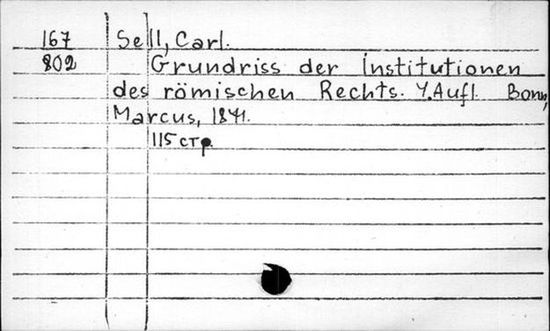 167 Sell, Carl.
802 Grundriss der Institutionen
des römischen Rechts. 4.Aufl. Bonn,
Marcus, 1841.
115 стр.